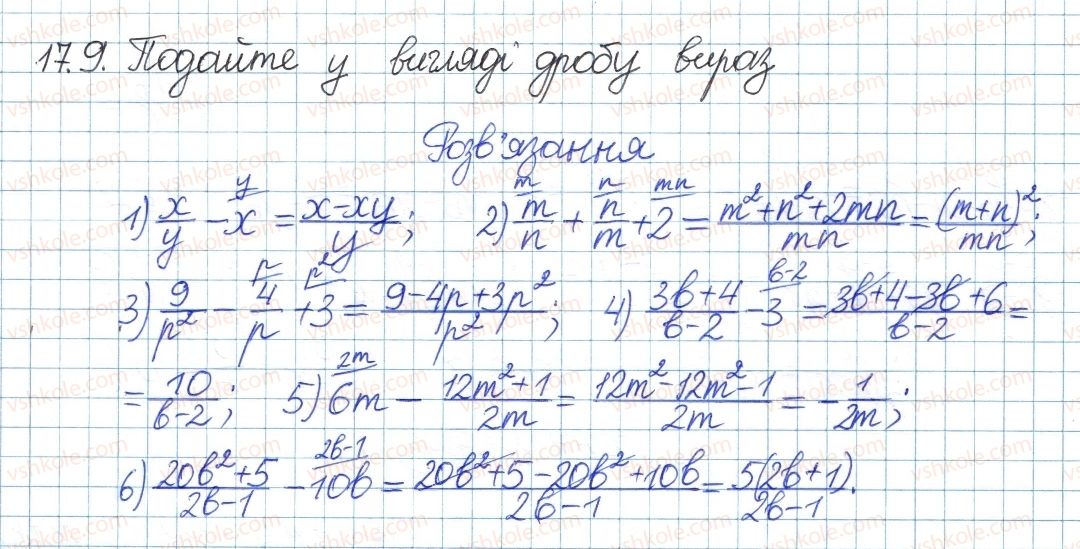 17.9. Подайте у вигляді дробу вираз
Розв'язання
1) x/y − x^(y = (x − xy)/y; 2) m/n^(m + n/m^(n + 2^(mn = (m² + n² + 2mn)/mn = (m + n)²/mn;
3) 9/p² − 4/p^(p + 3^(p² = (9 − 4p + 3p²)/p²; 4) (3b + 4)/(b − 2) − 3^(b−2 = (3b + 4 − 3b + 6)/(b − 2) =
= 10/(b − 2); 5) 6m^(2m − (12m² + 1)/2m = (12m² − 12m² − 1)/2m = −1/2m;
6) (20b² + 5)/(2b − 1) − 10b^(2b−1 = (20b² + 5 − 20b² + 10b)/(2b − 1) = 5(2b + 1)/(2b − 1).